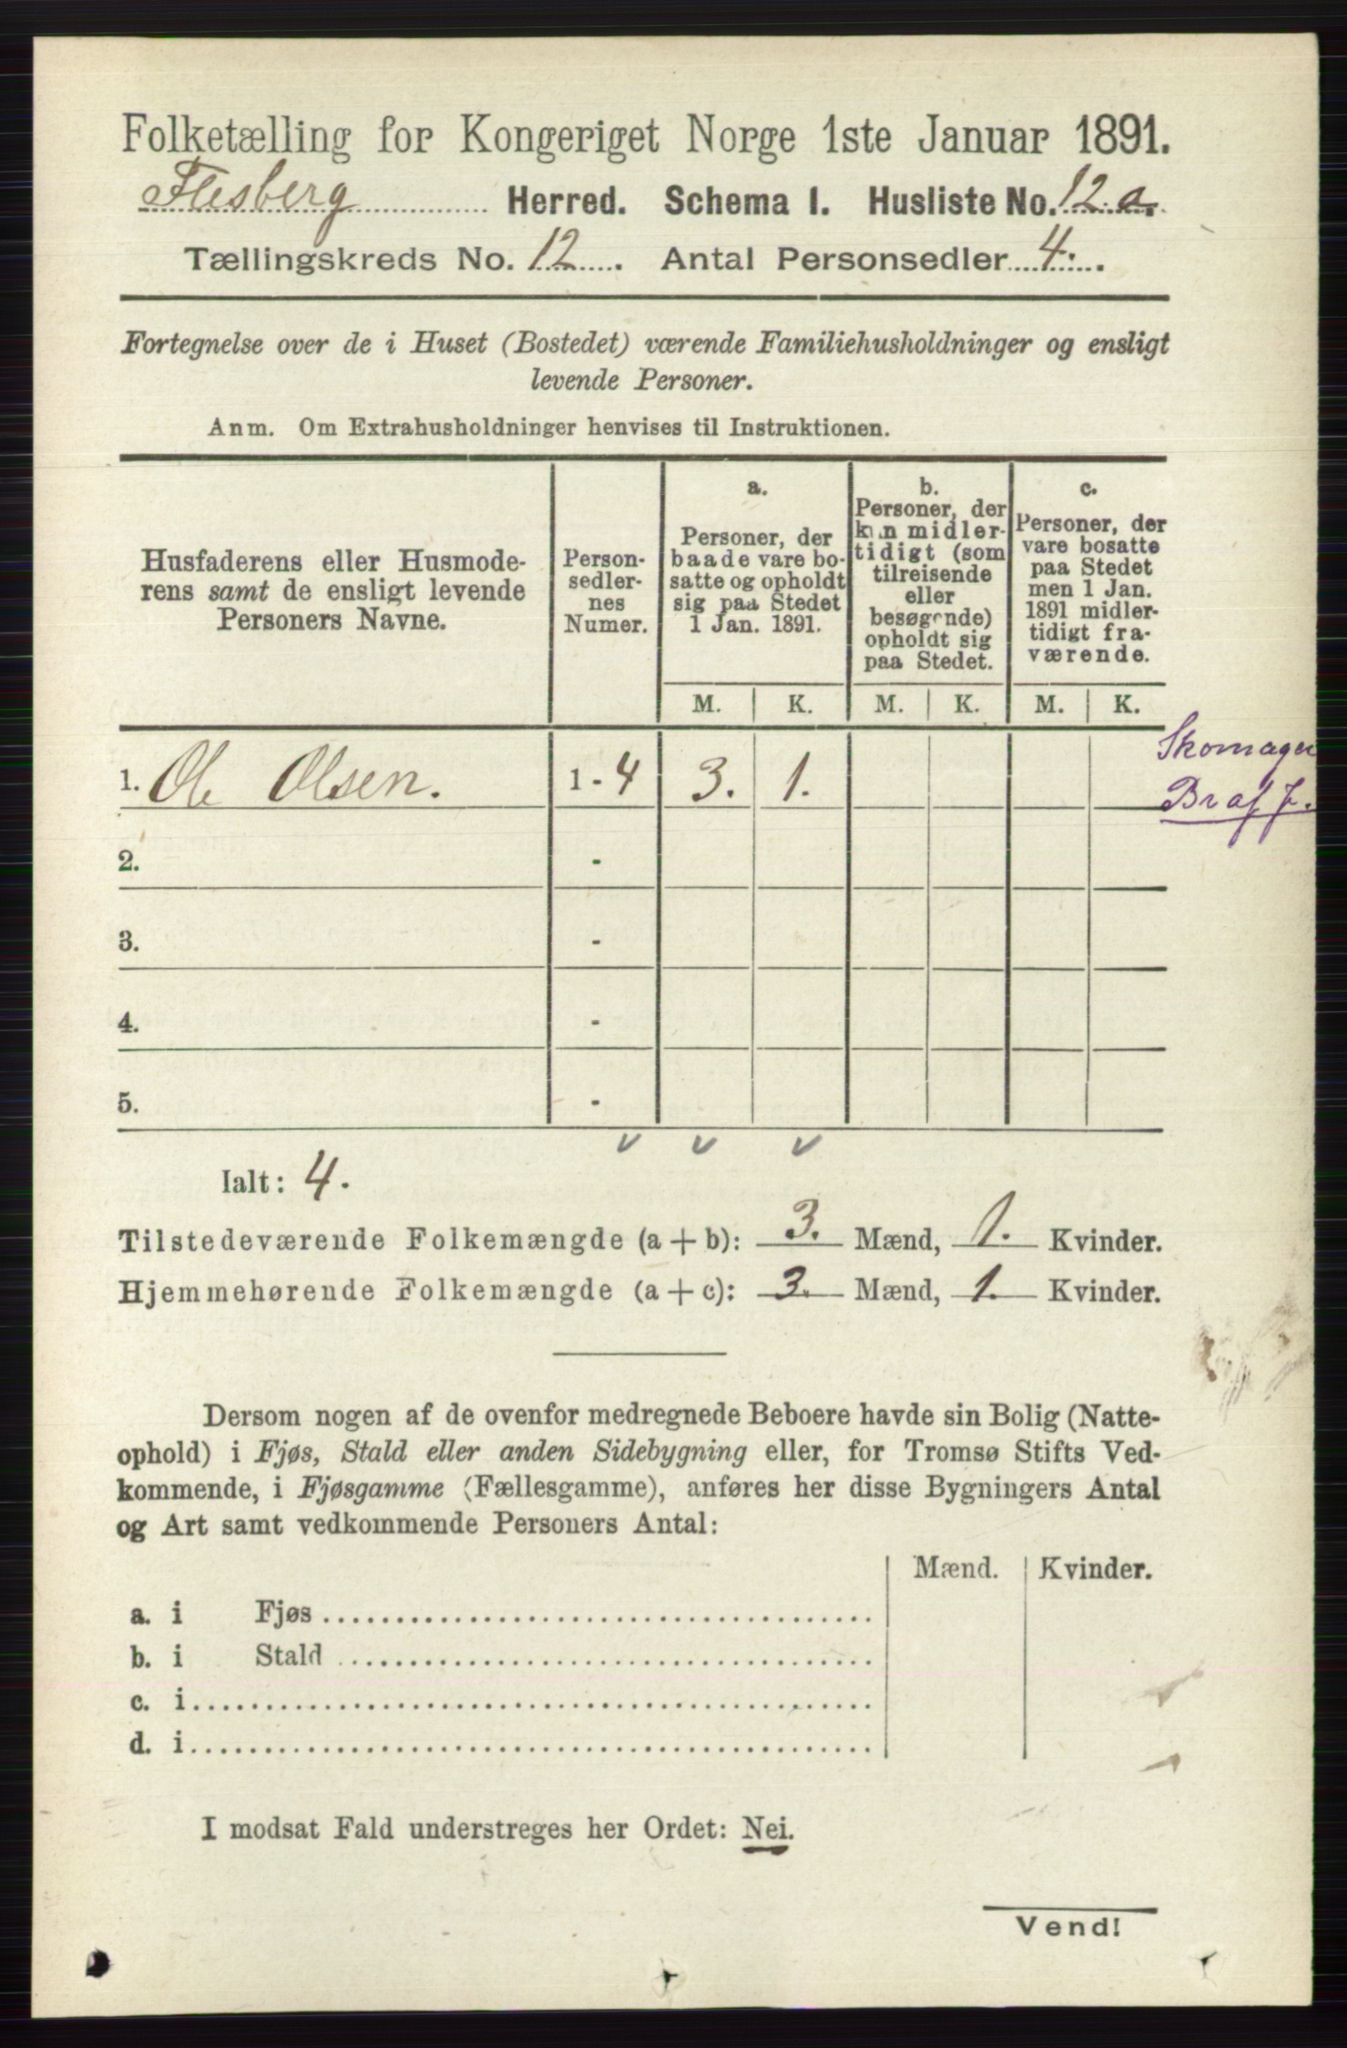 Folketælling for Kongeriget Norge 1ste Januar 1891.
Flesberg Herred. Schema I. Husliste No. 12.a.
Tællingskreds No. 12. Antal Personsedler 4.
Fortegnelse over de i Huset (Bostedet) værende Familiehusholdninger og ensligt
levende Personer.
Anm. Om Extrahusholdninger henvises til Instruktionen.
Husfaderens eller Husmode-
rens samt de ensligt levende
Personers Navne.
Person-
sedler-
nes
Numer.
a.
Personer, der
baade vare bo-
satte og opholdt
sig paa Stedet
1 Jan. 1891.
b.
Personer, der
kun midler-
tidigt (som
tilreisende
eller
besøgende)
opholdt sig
paa Stedet.
c.
Personer, der
vare bosatte
paa Stedet
men 1 Jan.
1891 midler-
tidigt fra-
værende.
M. K. M. K. M. K.
1. Ole Olsen. 1 - 4 3. 1.
Skomager
Br af J.
2. -
3. -
4. -
5. -
Ialt: 4.
Tilstedeværende Folkemængde (a + b): 3. Mænd, 1. Kvinder.
Hjemmehørende Folkemængde (a + c): 3. Mænd, 1. Kvinder.
Dersom nogen af de ovenfor medregnede Beboere havde sin Bolig (Natte-
ophold) i Fjøs, Stald eller anden Sidebygning eller, for Tromsø Stifts Ved-
kommende, i Fjøsgamme (Fællesgamme), anføres her disse Bygningers Antal
og Art samt vedkommende Personers Antal:
Mænd. Kvinder.
a. i Fjøs
b. i Stald
c. i
d. i
I modsat Fald understreges her Ordet: Nei.
Vend!